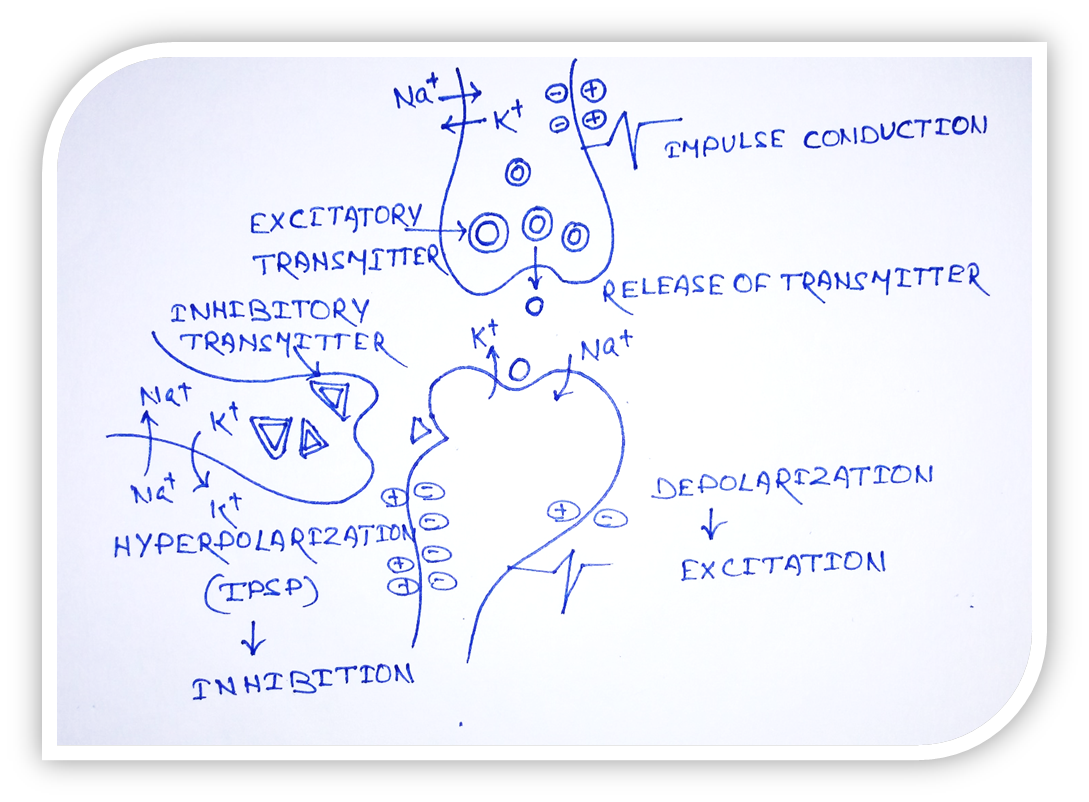 Na+
K+
⊖ ⊕
⊖ ⊕
IMPULSE CONDUCTION
EXCITATORY
TRANSMITTER
RELEASE OF TRANSMITTER
INHIBITORY
TRANSMITTER
K+
Na+
Na+
K+
Na+
K+
HYPERPOLARIZATION
(IPSP)
↓
INHIBITION
⊕ ⊖
⊖
⊕ ⊖
⊕ ⊖
⊕ ⊖
DEPOLARIZATION
↓
EXCITATION